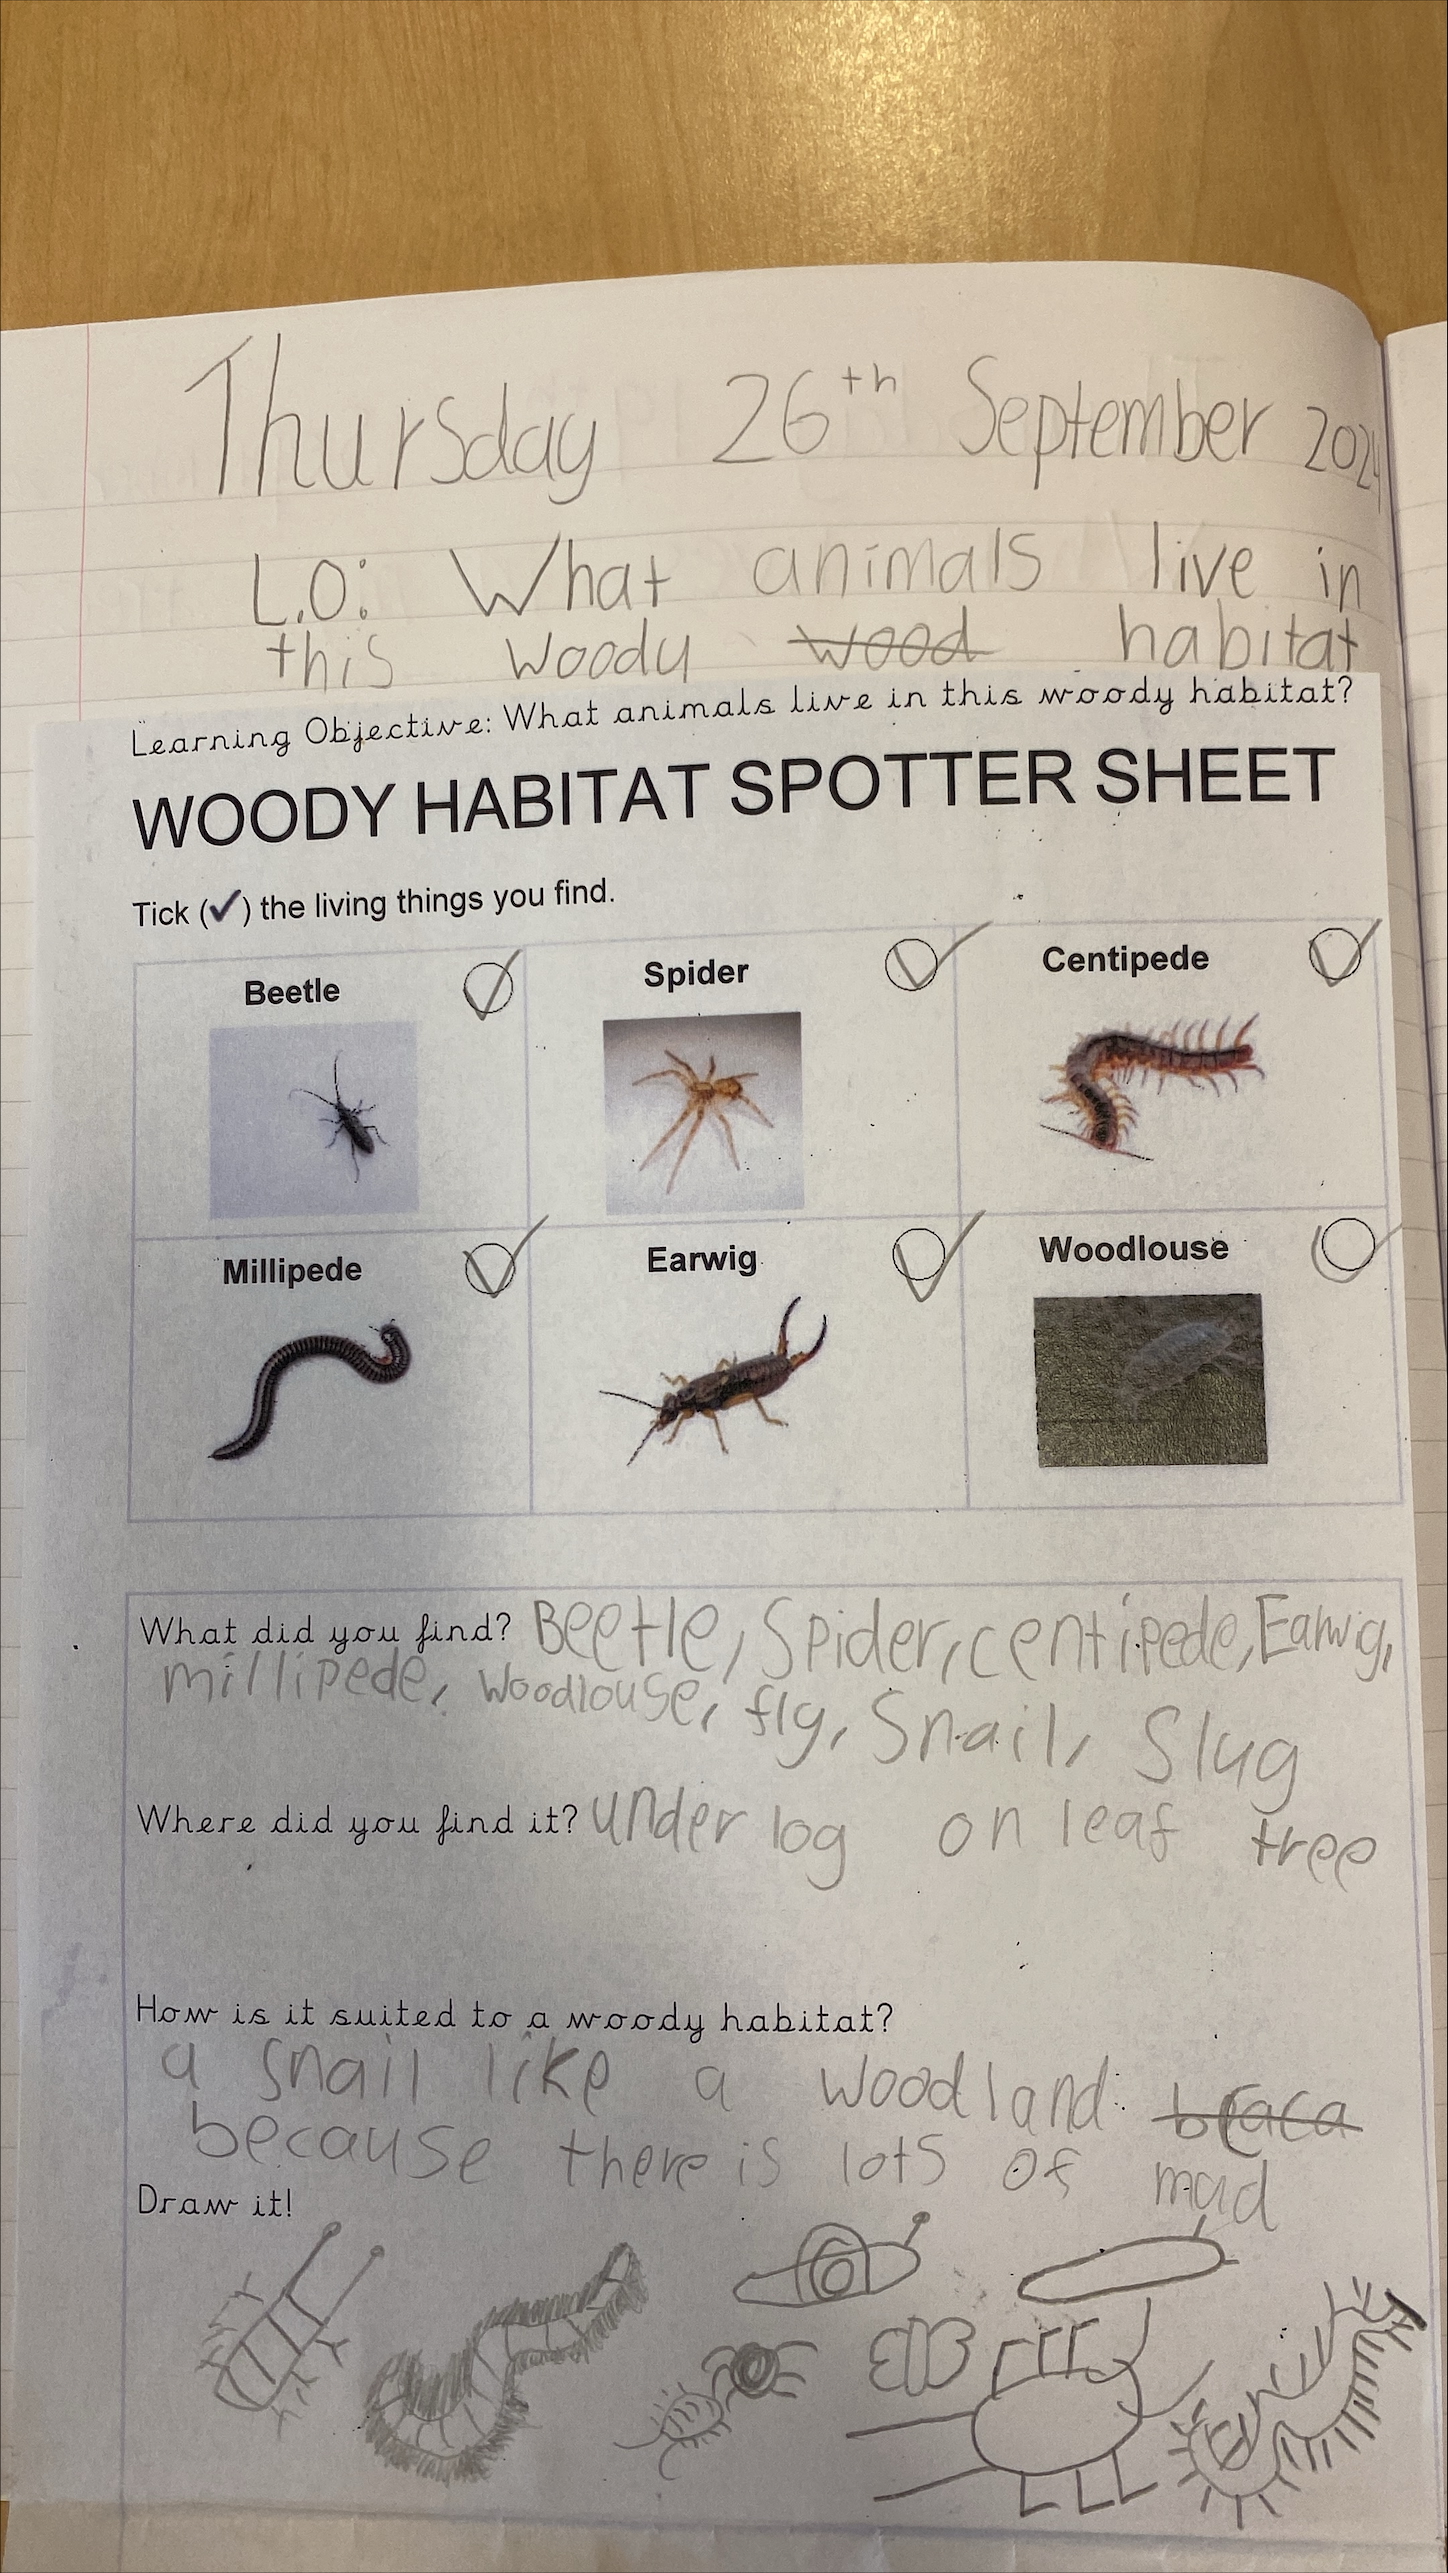 Thursday 26th September 2024
L.O: What animals live in
this woody wood habitat
Learning Objective: What animals live in this woody habitat?
WOODY HABITAT SPOTTER SHEET
Tick (✓) the living things you find.
Beetle Spider Centipede
Millipede Earwig Woodlouse
What did you find? Beetle, Spider, centipede, Earwig,
millipede, woodlouse, fly, Snail, Slug
Where did you find it? under log on leaf tree
How is it suited to a woody habitat?
a snail like a woodland
because there is lots of mud
Draw it!